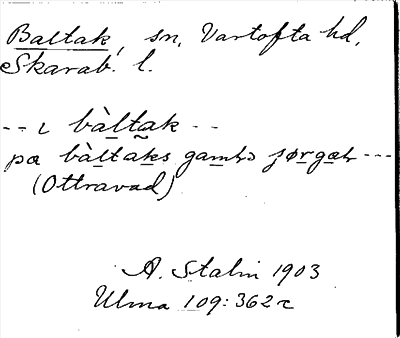 Baltak, sn, Vartofta hd,
Skarab. l.
-- ɩ bàltak --
pa bàltaks gamlɔ ʃørgał ---
(Ottravad)
A. Stalin 1903
Ulma 109:362 c